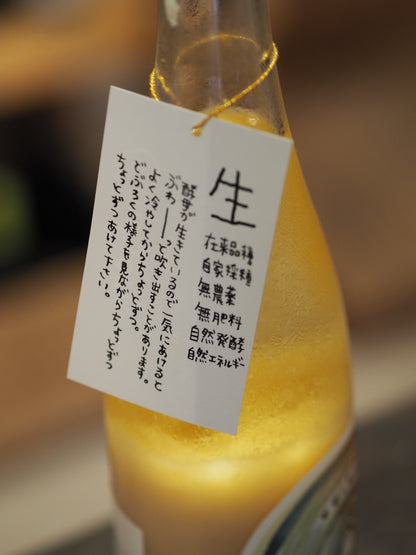 生
在来品種
自家採種
無農薬
無肥料
自然発酵
自然エネルギー
酵母が生きているので一気にあけると
ぶわーーっと吹き出すことがあります。
よく冷やしてからちょっとずつ。
どぶろくの様子を見ながらちょっとずつ
ちょっとずつあけて下さい。